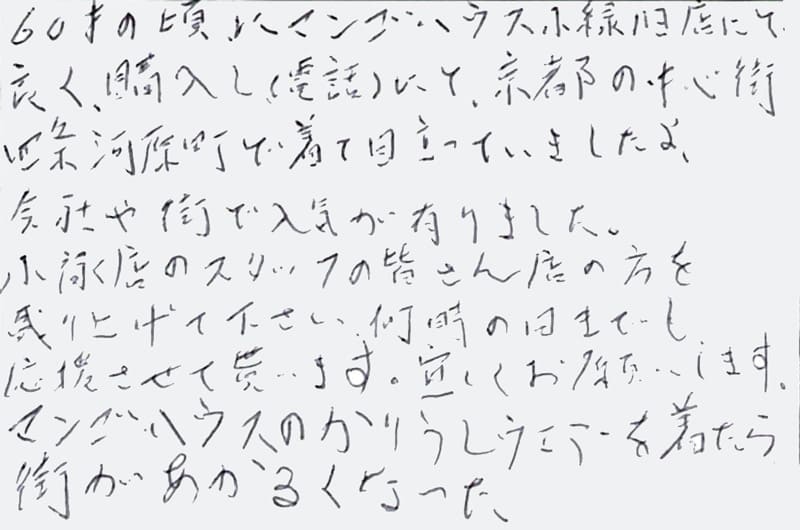 60才の頃よりマンゴハウス小緑旧店にて
良く、購入し(電話)にて、京都の中心街
四条河原町で着て目立っていましたよ、
会社や街で人気が有りました。
小禄店のスタッフの皆さん店の方を
盛り上げて下さい、何時の日までも
応援させて貰います。宜しくお願いします。
マンゴハウスのかりうしウェアーを着たら
街があかるくなった、